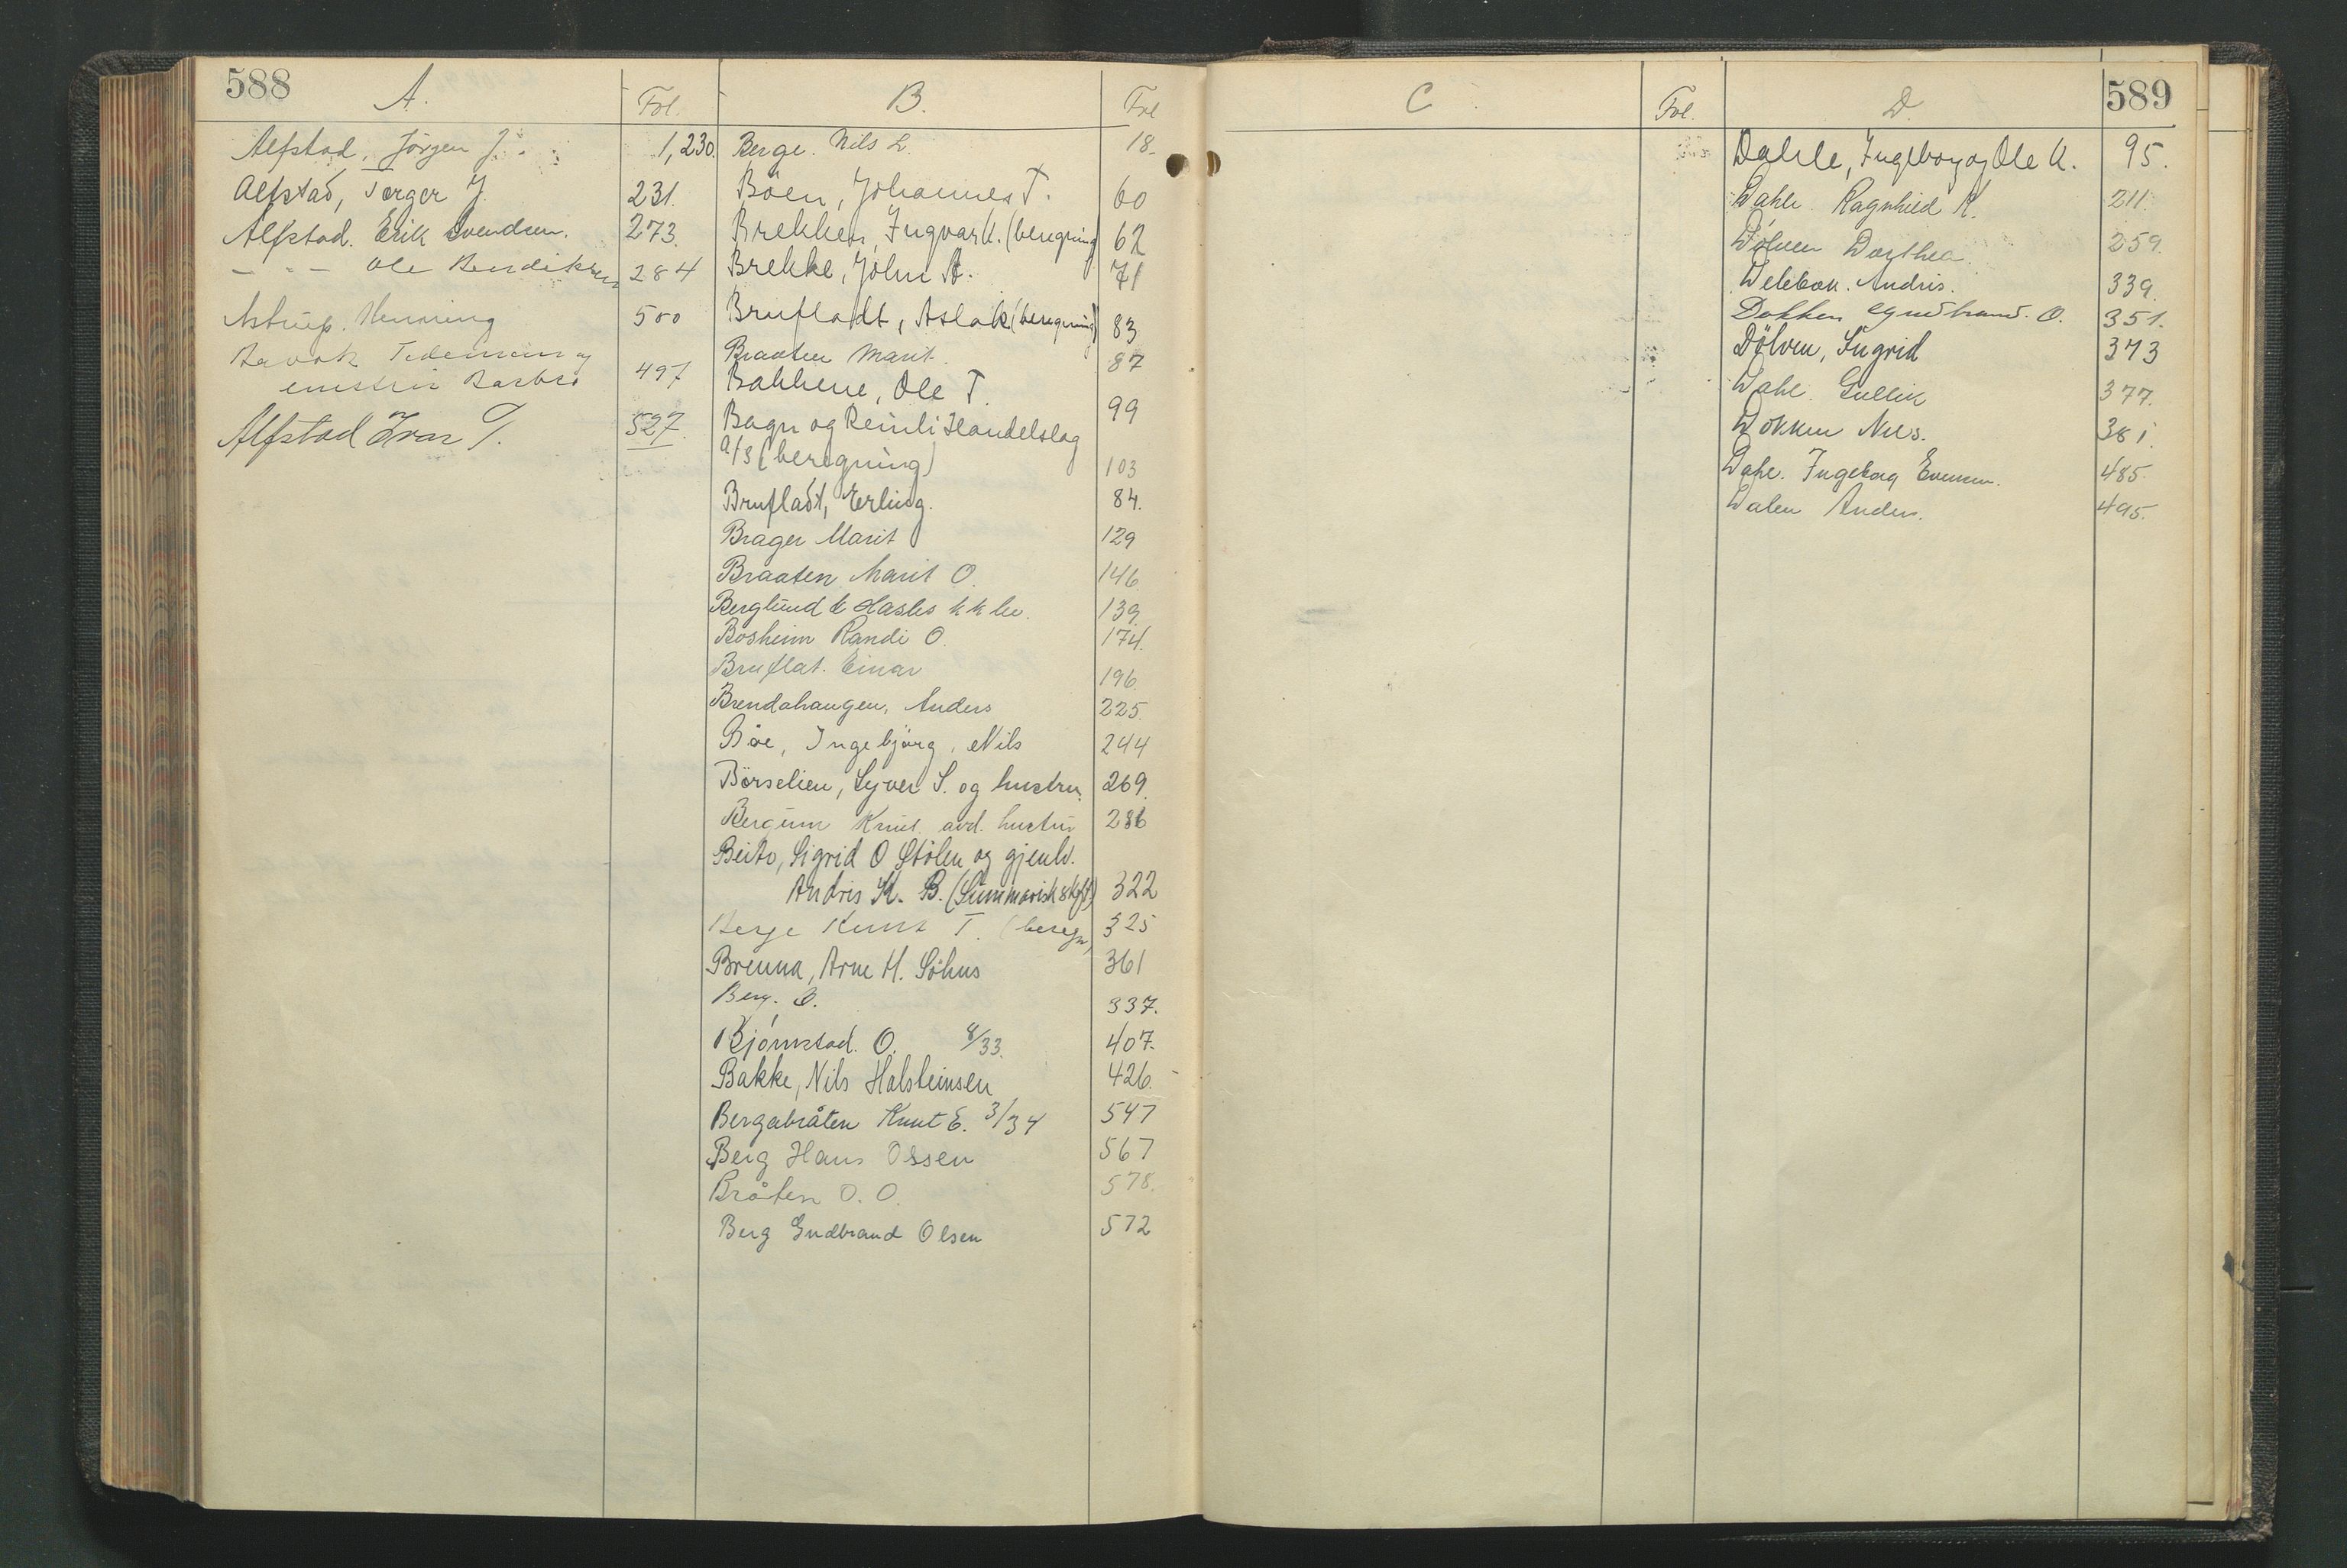 588
A.
Fol.
B.
Fol
Alfstad, Jörgen J. 1,230.
Alfstad, Torger J. 231.
Alfstad. Erik Svendsen. 273.
— " — Ole Bendiksen 284
Astrup. Henning 500
Tidemann og
Barbro 497
Alfstad Ivar T. 527.
Berge. Nils L. 18.
Böen, Johannes T. 60
Brekken, Ingvar K. (beregning) 62
Brekke, John A. 71
Brufladt, Aslak (beregning) 83
Braaten Marit. 87
Bakkene, Ole T. 99
Bagn og Reinli Handelslag
a/s (beregning) 103
Brufladt, Erling. 84.
Brager Marit 129
Braaten Marit O. 146
Berglund & 139.
Bosheim Randi O. 174.
Bruflat. Einar 196
Brendahaugen, Anders 225.
Böe, Ingebjörg, Nils 244
Börselien, Syver S. og hustru. 269.
Bergum Knut avd. hustru 286
Beito, Sigrid O Stölen og gjenlv.
Andris K. B. (Summarisk skft) 322
Berge Knut T. (beregn) 325
Brenna, Arne H. Söhus 361
Berg. O. 337.
Bjørnstad. O. 8/33. 407.
Bakke, Nils Halsteinsen 426.
Bergabråten Knut E. 3/34 547
Berg Hans Olssen 567
Bråten O. O. 578.
Berg Gudbrand Olsen 572
C
Fol.
D.
589
Dahle, Ingeborg og Ole K. 95.
Dahle Ragnhild K. 211.
Dölven Dorthea. 259.
Andris. 339.
Dokken Gudbrand. O. 351.
Dölven, Sigrid 373
Dahl. Gullik 377.
Dokken Nils. 381.
Dahl. Ingeborg Evensen. 485.
Dalen Anders. 495.